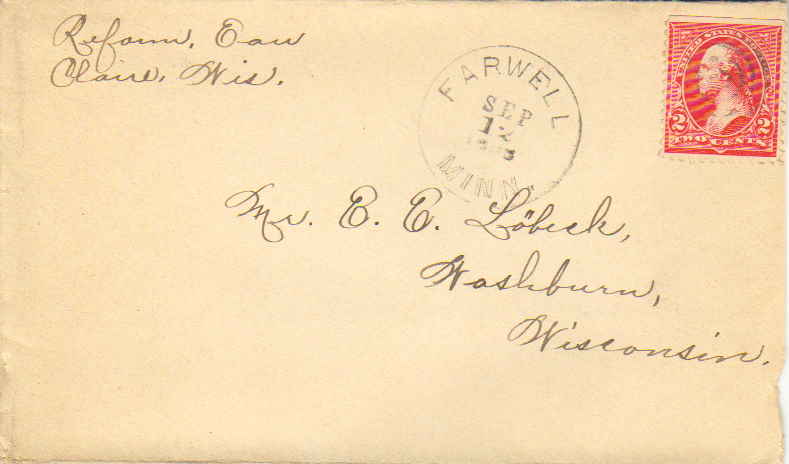 Reform, Eau
Claire, Wis.
FARWELL
SEP
12
MINN.
UNITED STATES POSTAGE
2 2
TWO CENTS
Mr. E. E. Löbeck,
Washburn,
Wisconsin.